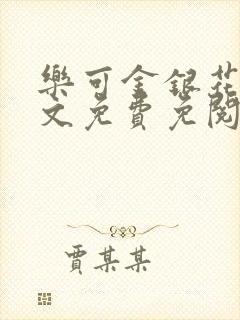 樂可金銀花
文免費免閱
賈某某